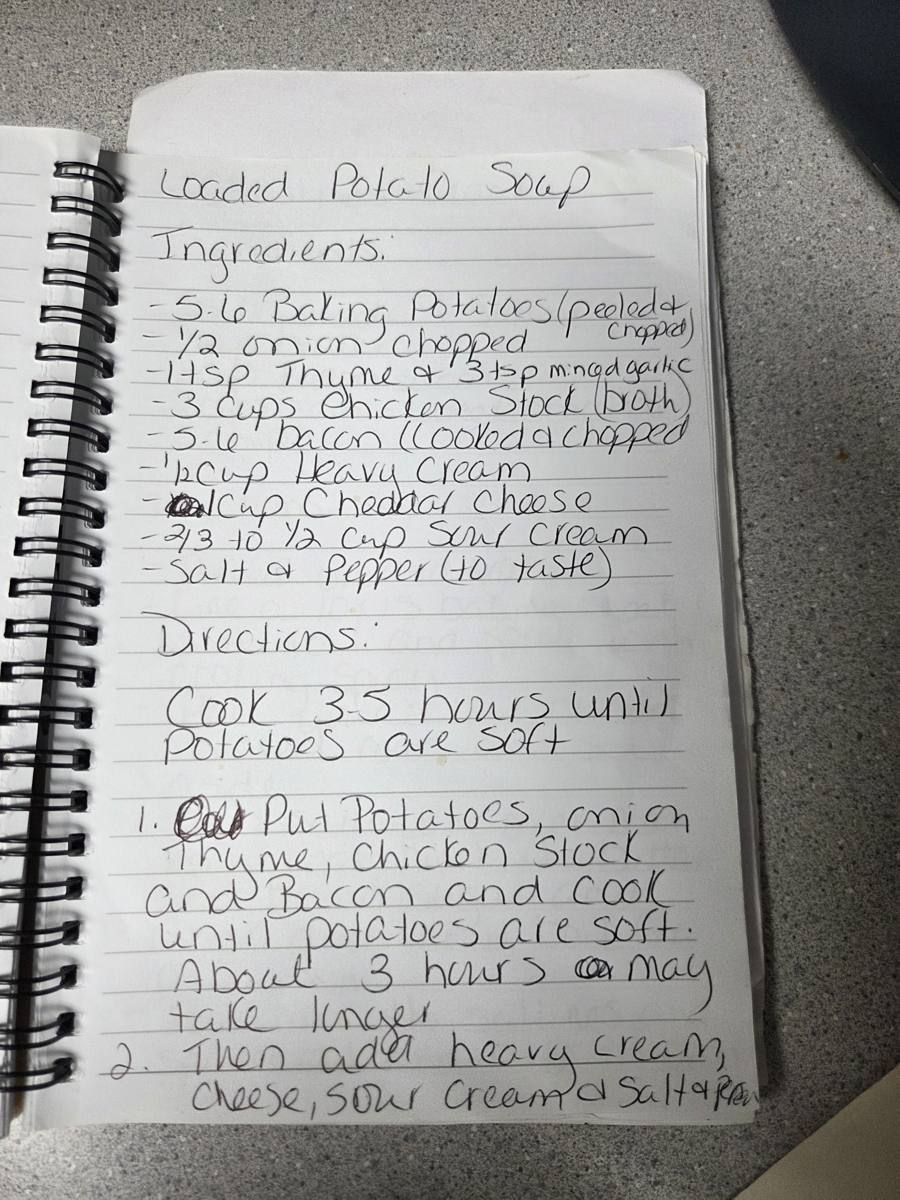 Loaded Potato Soup
Ingredients:
- 5-6 Baking Potatoes (peeled & chopped)
- 1/2 onion chopped
- 1 tsp Thyme & 3 tsp minced garlic
- 3 cups Chicken Stock (broth)
- 5-6 bacon (cooked & chopped
- 1/2 cup Heavy Cream
- 1 Cup Cheddar Cheese
- 2/3 to 1/2 cup Sour Cream
- Salt & Pepper (to taste)
Directions:
Cook 3-5 hours until
potatoes are soft
1. Put Potatoes, onion
Thyme, Chicken Stock
and Bacon and cook
until potatoes are soft.
About 3 hours may
take longer
2. Then add heavy cream,
Cheese, sour cream & Salt &